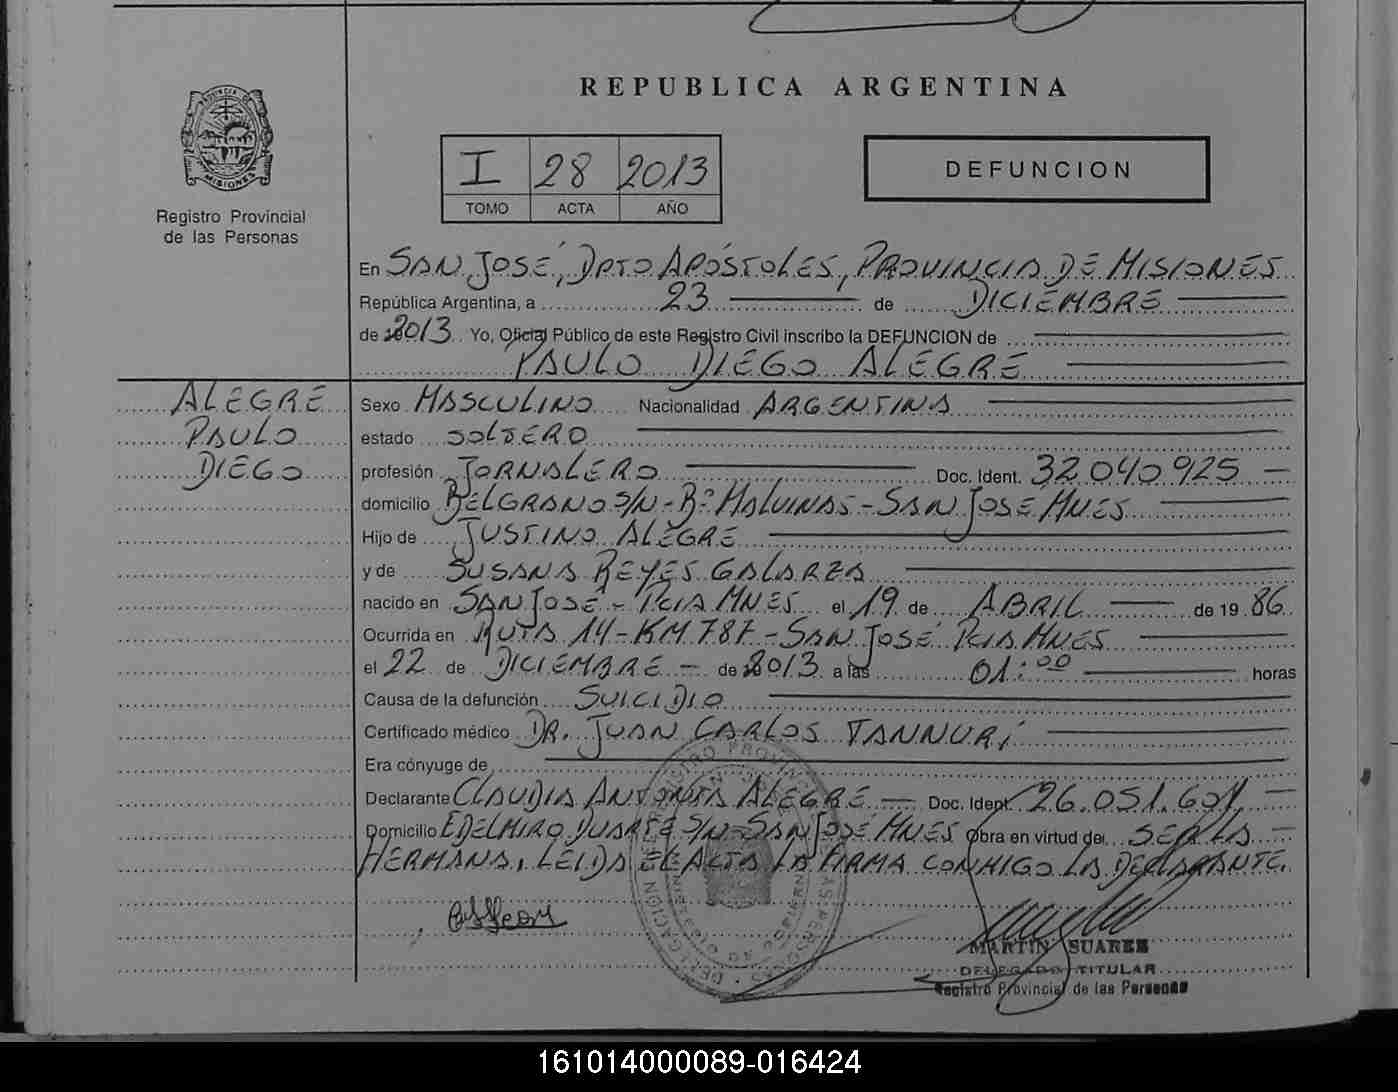 REPUBLICA ARGENTINA
PROVINCIA DE
MISIONES
Registro Provincial
de las Personas
I 28 2013
TOMO ACTA AÑO
DEFUNCION
En SAN JOSÉ, DPTO APÓSTOLES, PROVINCIA DE MISIONES
República Argentina, a 23 de DICIEMBRE
de 2013 Yo, Oficial Público de este Registro Civil inscribo la DEFUNCION de
PAULO DIEGO ALEGRE
ALEGRE
PAULO
DIEGO
Sexo MASCULINO Nacionalidad ARGENTINA
estado SOLTERO
profesión JORNALERO Doc. Ident. 32.040.925
domicilio BELGRANO S/N - Bº MALVINAS - SAN JOSE MNES
Hijo de JUSTINO ALEGRE
y de SUSANA REYES GALARZA
nacido en SAN JOSÉ - PCIA MNES el 19 de ABRIL de 1986
Ocurrida en RUTA 14 - KM 787 - SAN JOSÉ PCIA MNES
el 22 de DICIEMBRE de 2013 a las 01:00 horas
Causa de la defunción SUICIDIO
Certificado médico DR. JUAN CARLOS TANNURI
Era cónyuge de
Declarante CLAUDIA ANTONIA ALEGRE Doc. Ident. 26.051.601
Domicilio EDELMIRO DUARTE S/N - SAN JOSÉ MNES Obra en virtud de SER LA
HERMANA. LEIDA EL ACTA LA FIRMA CONMIGO LA DECLARANTE.
MARTIN SUAREZ
DELEGADO TITULAR
Registro Provincial de las Personas
161014000089-016424